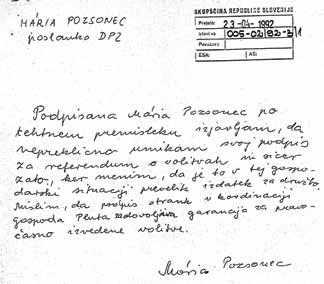 MÁRIA POZSONEC
poslanka DPZ
SKUPŠČINA REPUBLIKE SLOVENIJE
Prejeto: 23-04-1992
005-02/92-3/1
Povezava:
ESA: ASI:
Podpisana Mária Pozsonec po
tehtnem premisleku izjavljam, da
nepreklicno umikam svoj podpis
za referendum o volitvah in sicer
zato, ker menim, da je to v tej gospo-
darski situaciji prevelik izdatek za družbo,
mislim, da podpis strank v koordinaciji
gospoda Pluta zadovoljiva garancija za pravo-
časno izvedene volitve.
Mária Pozsonec